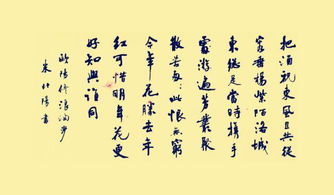 把酒祝東風且共從
容垂楊紫陌洛城
東總是當時携手
處游遍芳叢聚
散苦匆匆此恨無窮
今年花勝去年
紅可惜明年花更
好知與誰同
歐陽修浪淘沙
書